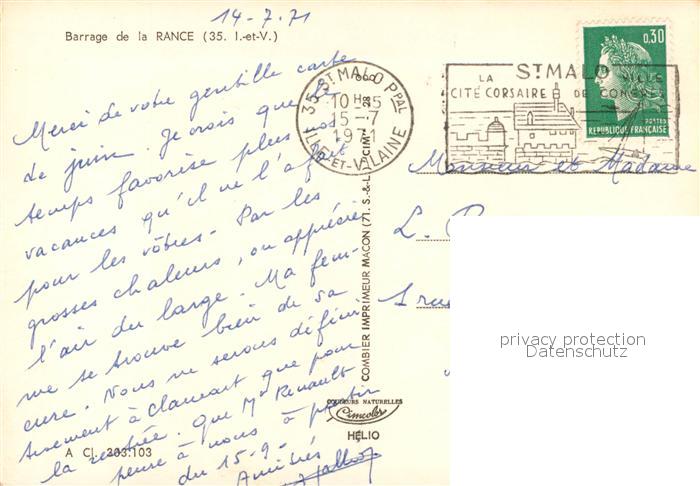 14-7.71
Barrage de la RANCE (35. I.-et-V.)
Merci de votre gentille carte
de juin. Je crois que le
temps favorise plus nos
vacances qu'il ne l'a fait
pour les vôtres. Par les
grosses chaleurs, on apprécie
l'air du large. Ma fem-
me se trouve bien de sa
cure. Nous ne serons défini-
tivement à Clamart que pour
la rentrée. Que Mr Renault
pense à nous à partir
du 15-9-
Amitiés
A Cl. 303.103
35 ST MALO PPAL
10 H 45
15-7
1971
ILLE-ET-VILAINE
LA ST MALO VILLE
CITÉ CORSAIRE DE CONGRÈS
0,30
POSTES
RÉPUBLIQUE FRANÇAISE
COMBIER IMPRIMEUR MACON (71. S.-&-L.) CIM
COULEURS NATURELLES
Cimcolor
HÉLIO
Monsieur et Madame
L. P
privacy protection
Datenschutz